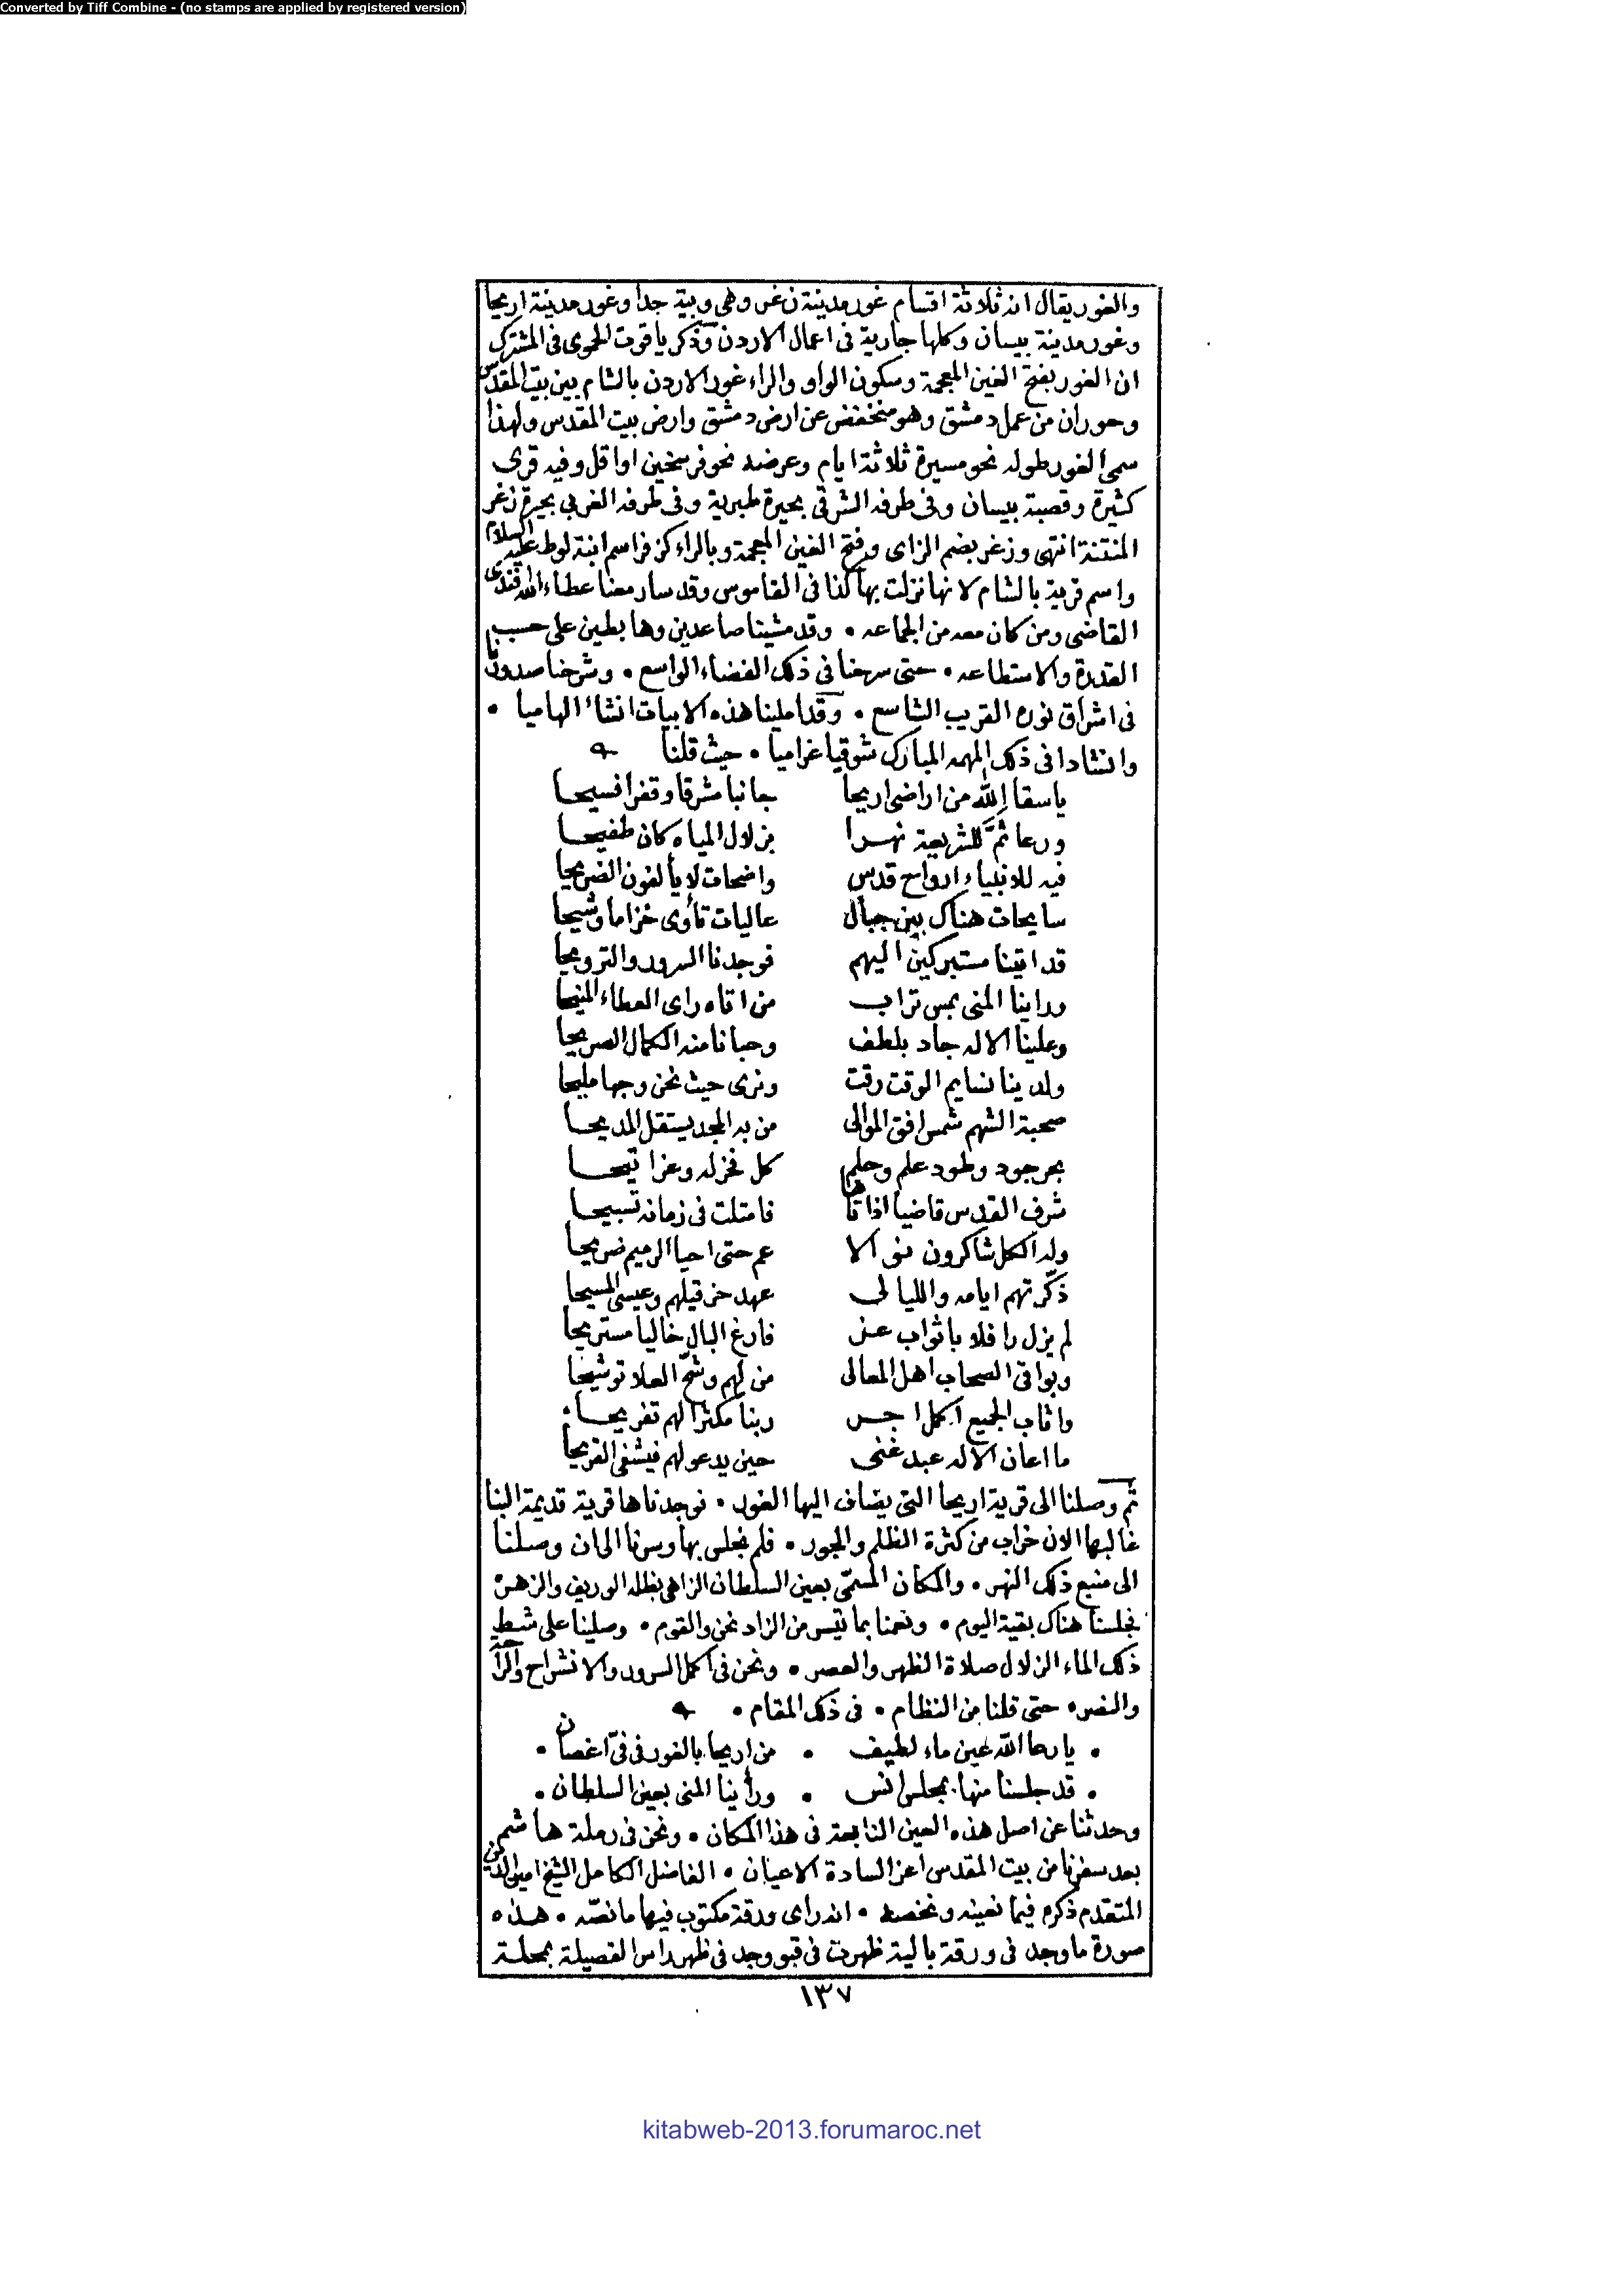 Converted by Tiff Combine - (no stamps are applied by registered version)
والغور يقال انه ثلاثة اقسام غور مدينة زغر وهى وبية جدا وغور مدينة اريحا
وغور مدينة بيسان وكلها جارية فى اعمال الاردن وذكر ياقوت الحموى فى المشترك
ان الغور بفتح الغين المعجمة وسكون الواو والراء غور الاردن بالشام بين بيت المقدس
وحوران من عمل دمشق وهو منخفض عن ارض دمشق وارض بيت المقدس ولهذا
سمى الغور طوله نحو مسيرة ثلاثة ايام وعرضه نحو فرسخين او اقل وفيه قرى
كثيرة وقصبة بيسان وفى طرفه الشرقى بحيرة طبرية وفى طرفه الغربي بحيرة زغر
المنتنة انتهى وزغر بضم الزاى وفتح الغين المعجمة وبالراء كزفر اسم ابنة لوط عليه السلام
واسم قرية بالشام لانها نزلت بها كذا فى القاموس وقد سار معنا عطاء الله افندى
القاضى ومن كان معه من الجماعه • وقد مشينا صاعدين وهابطين على حسب
القدرة والاستطاعه • حتى سرحنا فى ذلك الفضاء الواسع • وشرحنا صدورنا
فى اشراق نوره القريب الشاسع • وقد املينا هذه الابيات انشاء الهاميا •
وانشادا فى ذلك المهمه المبارك شوقيا غراميا • حيث قلنا
ياسقا الله من اراضى اريحا جانبا مشرقا وقفرا فسيحا
ورعا ثَمَّ للشريعة نهرا بزلال المياه كان طفيحا
فيه للانبياء ارواح قدس واضحات لا يألفون الضريحا
سايحات هناك بين جبال عاليات تأوى خزاما وشيحا
قد اتينا مستبركين اليهم فوجدنا السرور والترويحا
وراينا المنى بمس تراب من اتاه راى العطاء المنيحا
وعلينا الاله جاد بلطف وحبانا منه الكمال الصريحا
ولدينا نسايم الوقت رقت ونرى حيث نحن وجها مليحا
صحبة الشهم شمس افق الموالى من به المجد يستقل المديحا
بحر جود وطود علم وحلم كل فخر له وعزا تيحا
شرف القدس قاضيا اذ اتاها فامتلت فى زمانه تسبيحا
وله الكل شاكرون نوالا عم حتى احيا الرميم ضريحا
ذكّرتهم ايامه والليالى عهد حزقيلهم وعيسى المسيحا
لم يزل رافلا باثواب عز فارغ البال خاليا مستريحا
وبواقى الصحاب اهل المعالى من لهم وشّح العلا توشيحا
واثاب الجميع اكمل اجر ربنا مكثرا لهم تفريحا
ما اعان الاله عبد غنى حين يدعو لهم فيشفى القريحا
ثم وصلنا الى قرية اريحا التى يضاف اليها الغور • فوجدناها قرية قديمة البنا
غالبها الان خراب من كثرة الظلم والجور • فلم نجلس بها وسرنا الى ان وصلنا
الى منبع ذلك النهر • والمكان المسمّى بعين السلطان الزاهى بظله الوريف والزهر
فجلسنا هناك بقية اليوم • ونعمنا بما تيسر من الزاد نحن والقوم • وصلينا على شط
ذلك الماء الزلال صلاة الظهر والعصر • ونحن فى اكمل السرور والانشراح والراحة
والنصر • حتى قلنا من النظام • فى ذلك المقام •
• يا رعا الله عين ماء لطيف • من اريحا بالغور فى فىّ اغصان •
• قد جلسنا منها بمجلس انس • ورأينا المنى بعين السلطان •
وحدثنا عن اصل هذه العين النابعة فى هذا المكان • ونحن فى رملة هاشم
بعد سفرنا من بيت المقدس اعز السادة الاعيان • الفاضل الكامل الشيخ امين الدين
المتقدم ذكره فيما نعينه ونخصه • انه راى ورقة مكتوب فيها ما نصّه • هذه
صورة ما وجد فى ورقة بالية ظهرت فى قبو وجد فى ظهر راس الفصيلة بمحلة
١٣٧
kitabweb-2013.forumaroc.net